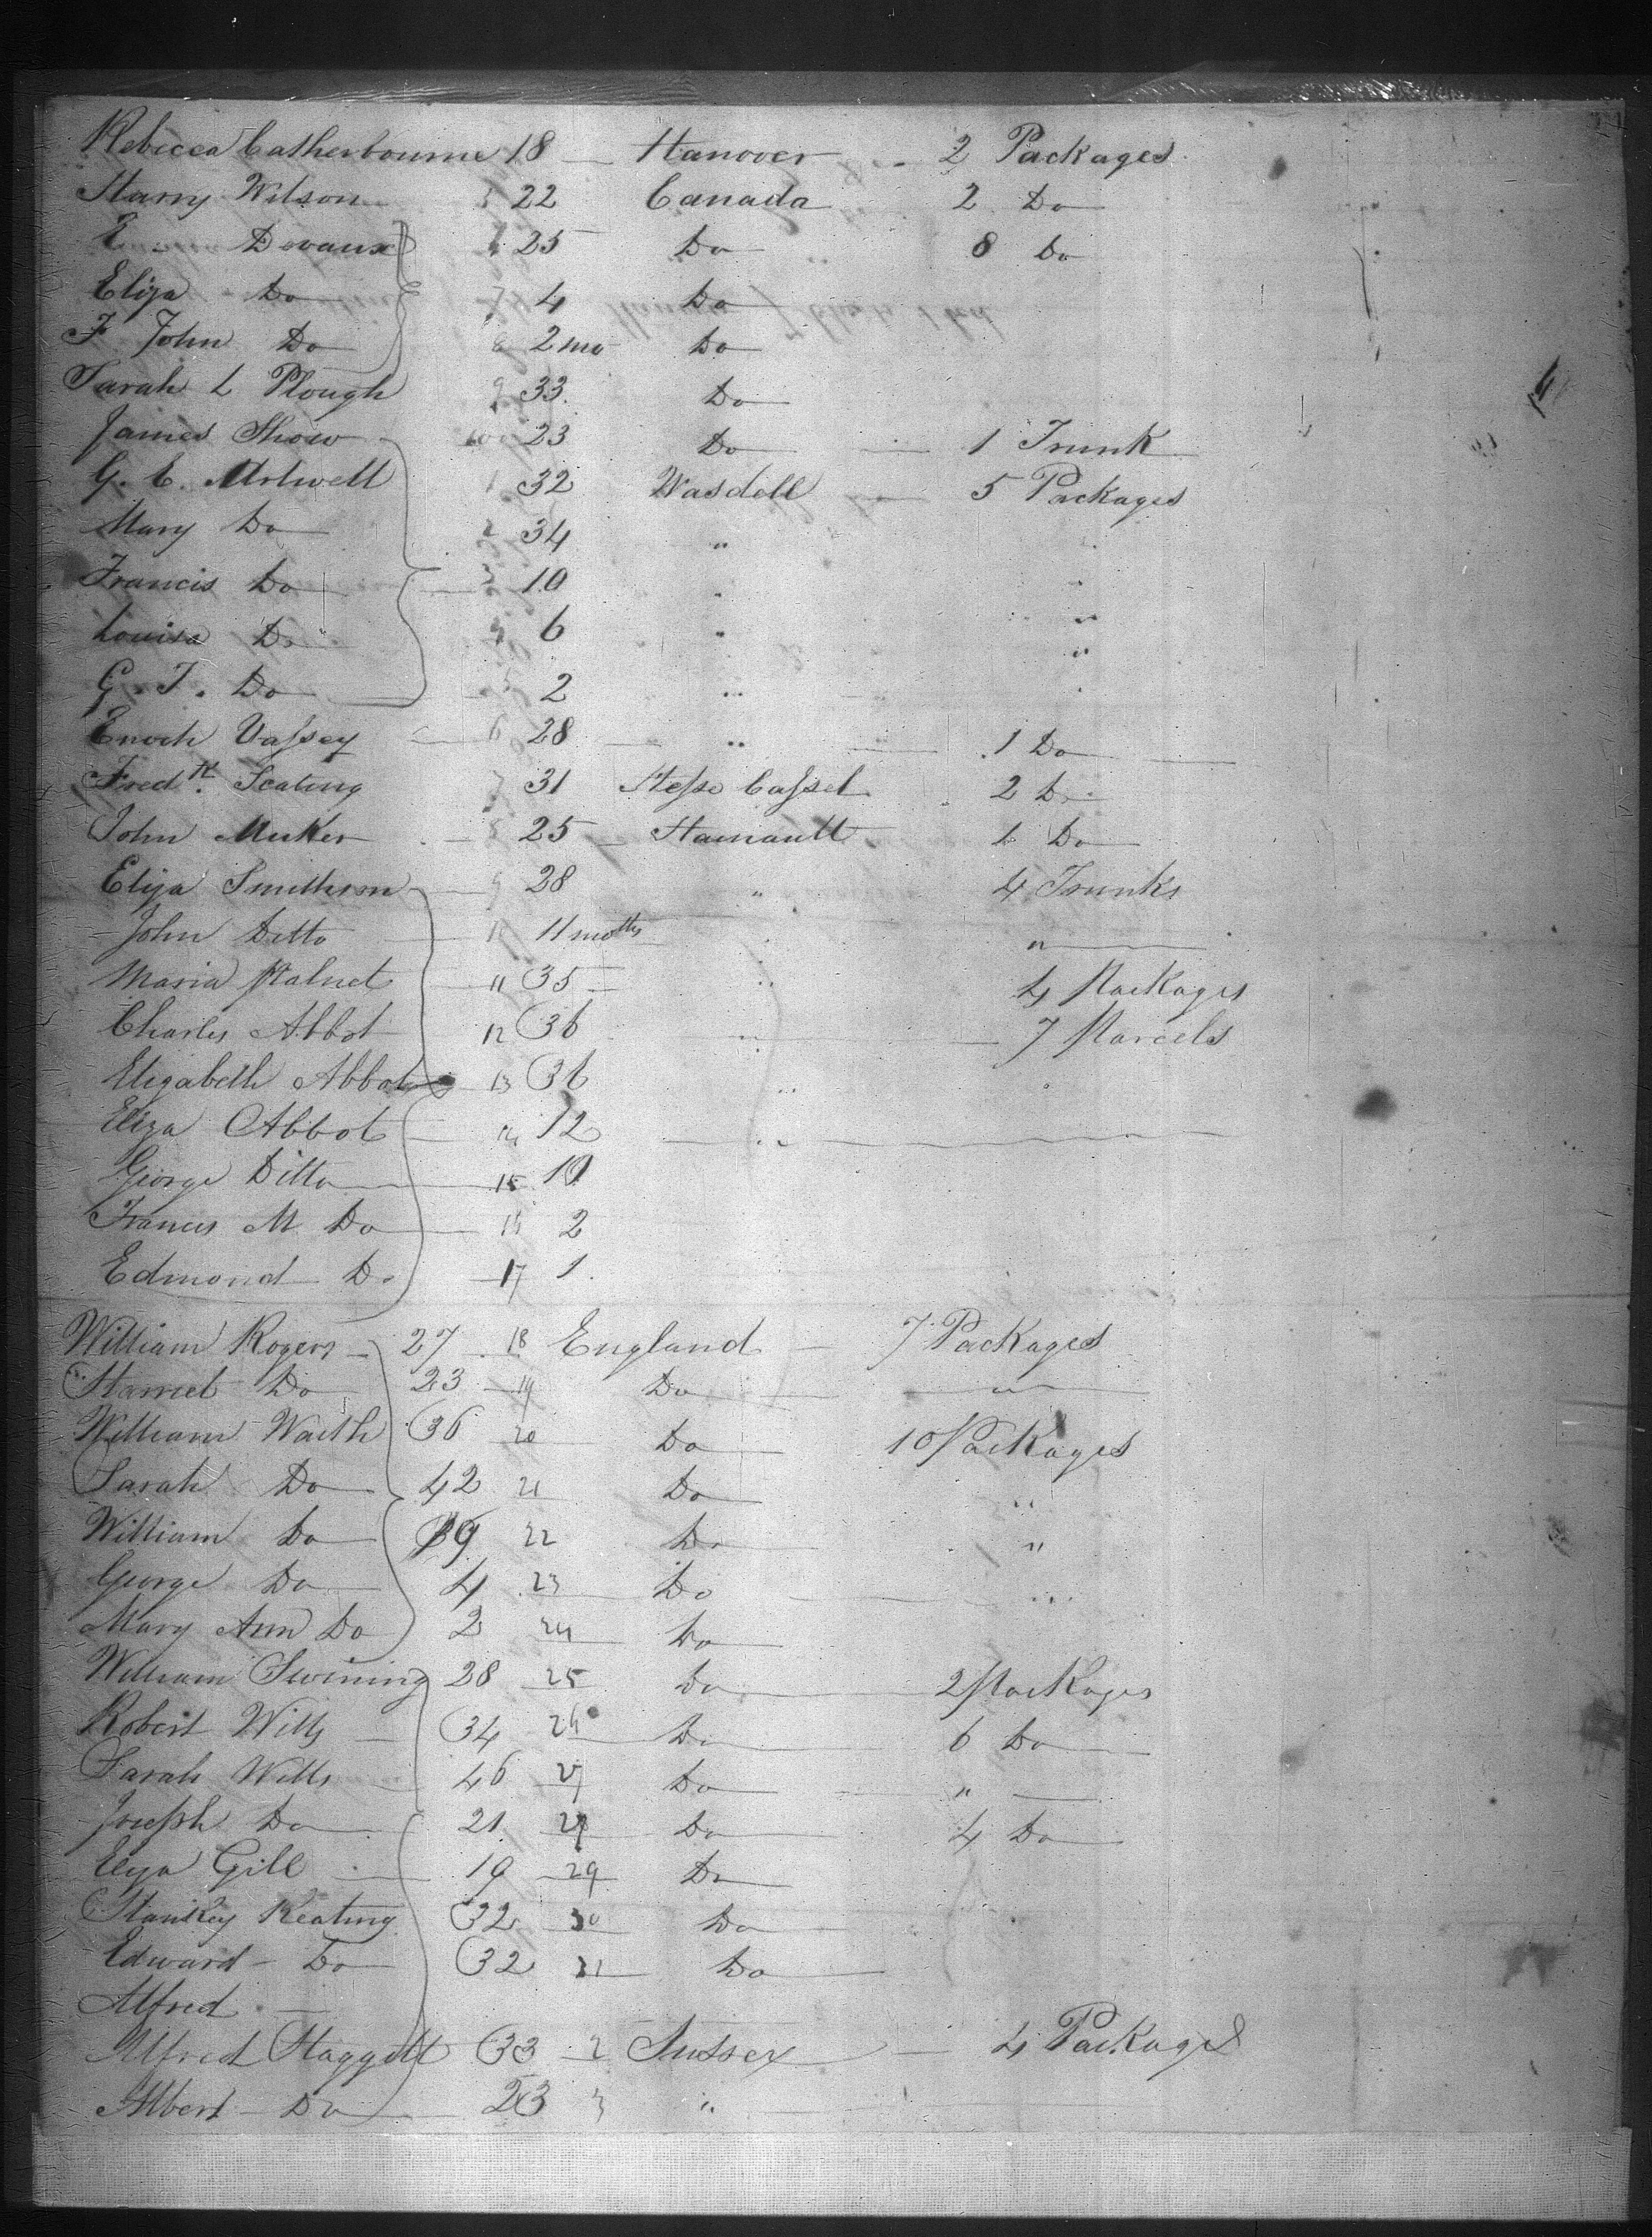 Rebecca Catherbourne 18 Hanover 2 Packages
Harry Wilson 5 22 Canada 2 Do
E Devaux 6 25 Do 8 Do
Eliza Do 7 4 Do
F John Do 8 2 mo Do
Sarah L Plough 9 33 Do
James Show 10 23 Do 1 Trunk
G. E. Artwell 1 32 Wasdell 5 Packages
Mary Do 2 34 "
Francis Do 3 10 " "
Louisa Do 4 6 " "
G. T. Do 5 2 " "
Enoch Vassey 6 28 " 1 Do
Fredk. Seating 7 31 Hesse Cassel 2 Do
John Muker 8 25 Hainault 1 Do
Eliza Smithson 9 28 " 4 Trunks
John Ditto 10 11 moths " "
Maria 11 35 " 4 Packages
Charles Abbot 12 36 " 7 Parcels
Elizabeth Abbot 13 36 "
Eliza Abbot 14 12 "
George Ditto 15 10
Francis M Do 16 2
Edmond Do 17 1
William Rogers 27 18 England 7 Packages
Harriet Do 23 19 Do "
William Waith 36 20 Do 10 Packages
Sarah Do 42 21 Do "
William Do 9 22 Do "
George Do 4 23 Do "
Mary Ann Do 2 24 Do
William Swining 28 25 Do 2 Packages
Robert Wills 34 26 Do 6 Do
Sarah Wills 46 27 Do "
Joseph Do 21 28 Do 4 Do
Eliza Gill 19 29 Do
Stankey Keating 32 30 Do
Edward Do 32 31 Do
Alfred
Alfred Haggett 33 2 Sussex 4 Packages
Albert Do 23 3 "